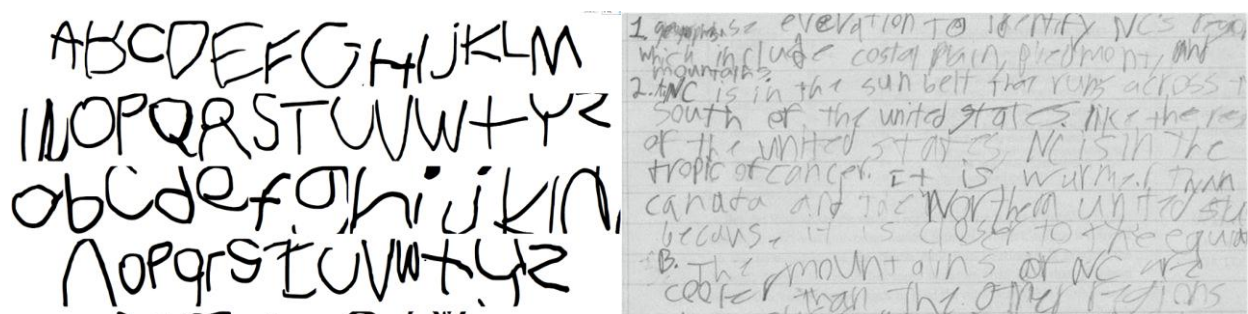 ABCDEFGHIJKLM
NOPQRSTUVW+YZ
abcdefghijklm
nopqrstuvwxyz
1. use elevation to identify NC's
which include costal plain, piedmont, and
mountains
2. NC is in the sun belt that runs across
south of the united states. like the res
of the united states, NC is in the
tropic of cancer. It is wurmer than
canada and the Northern united sta
becaus, it is closer to the equa
B. The mountains of NC are
cooler than the other regions